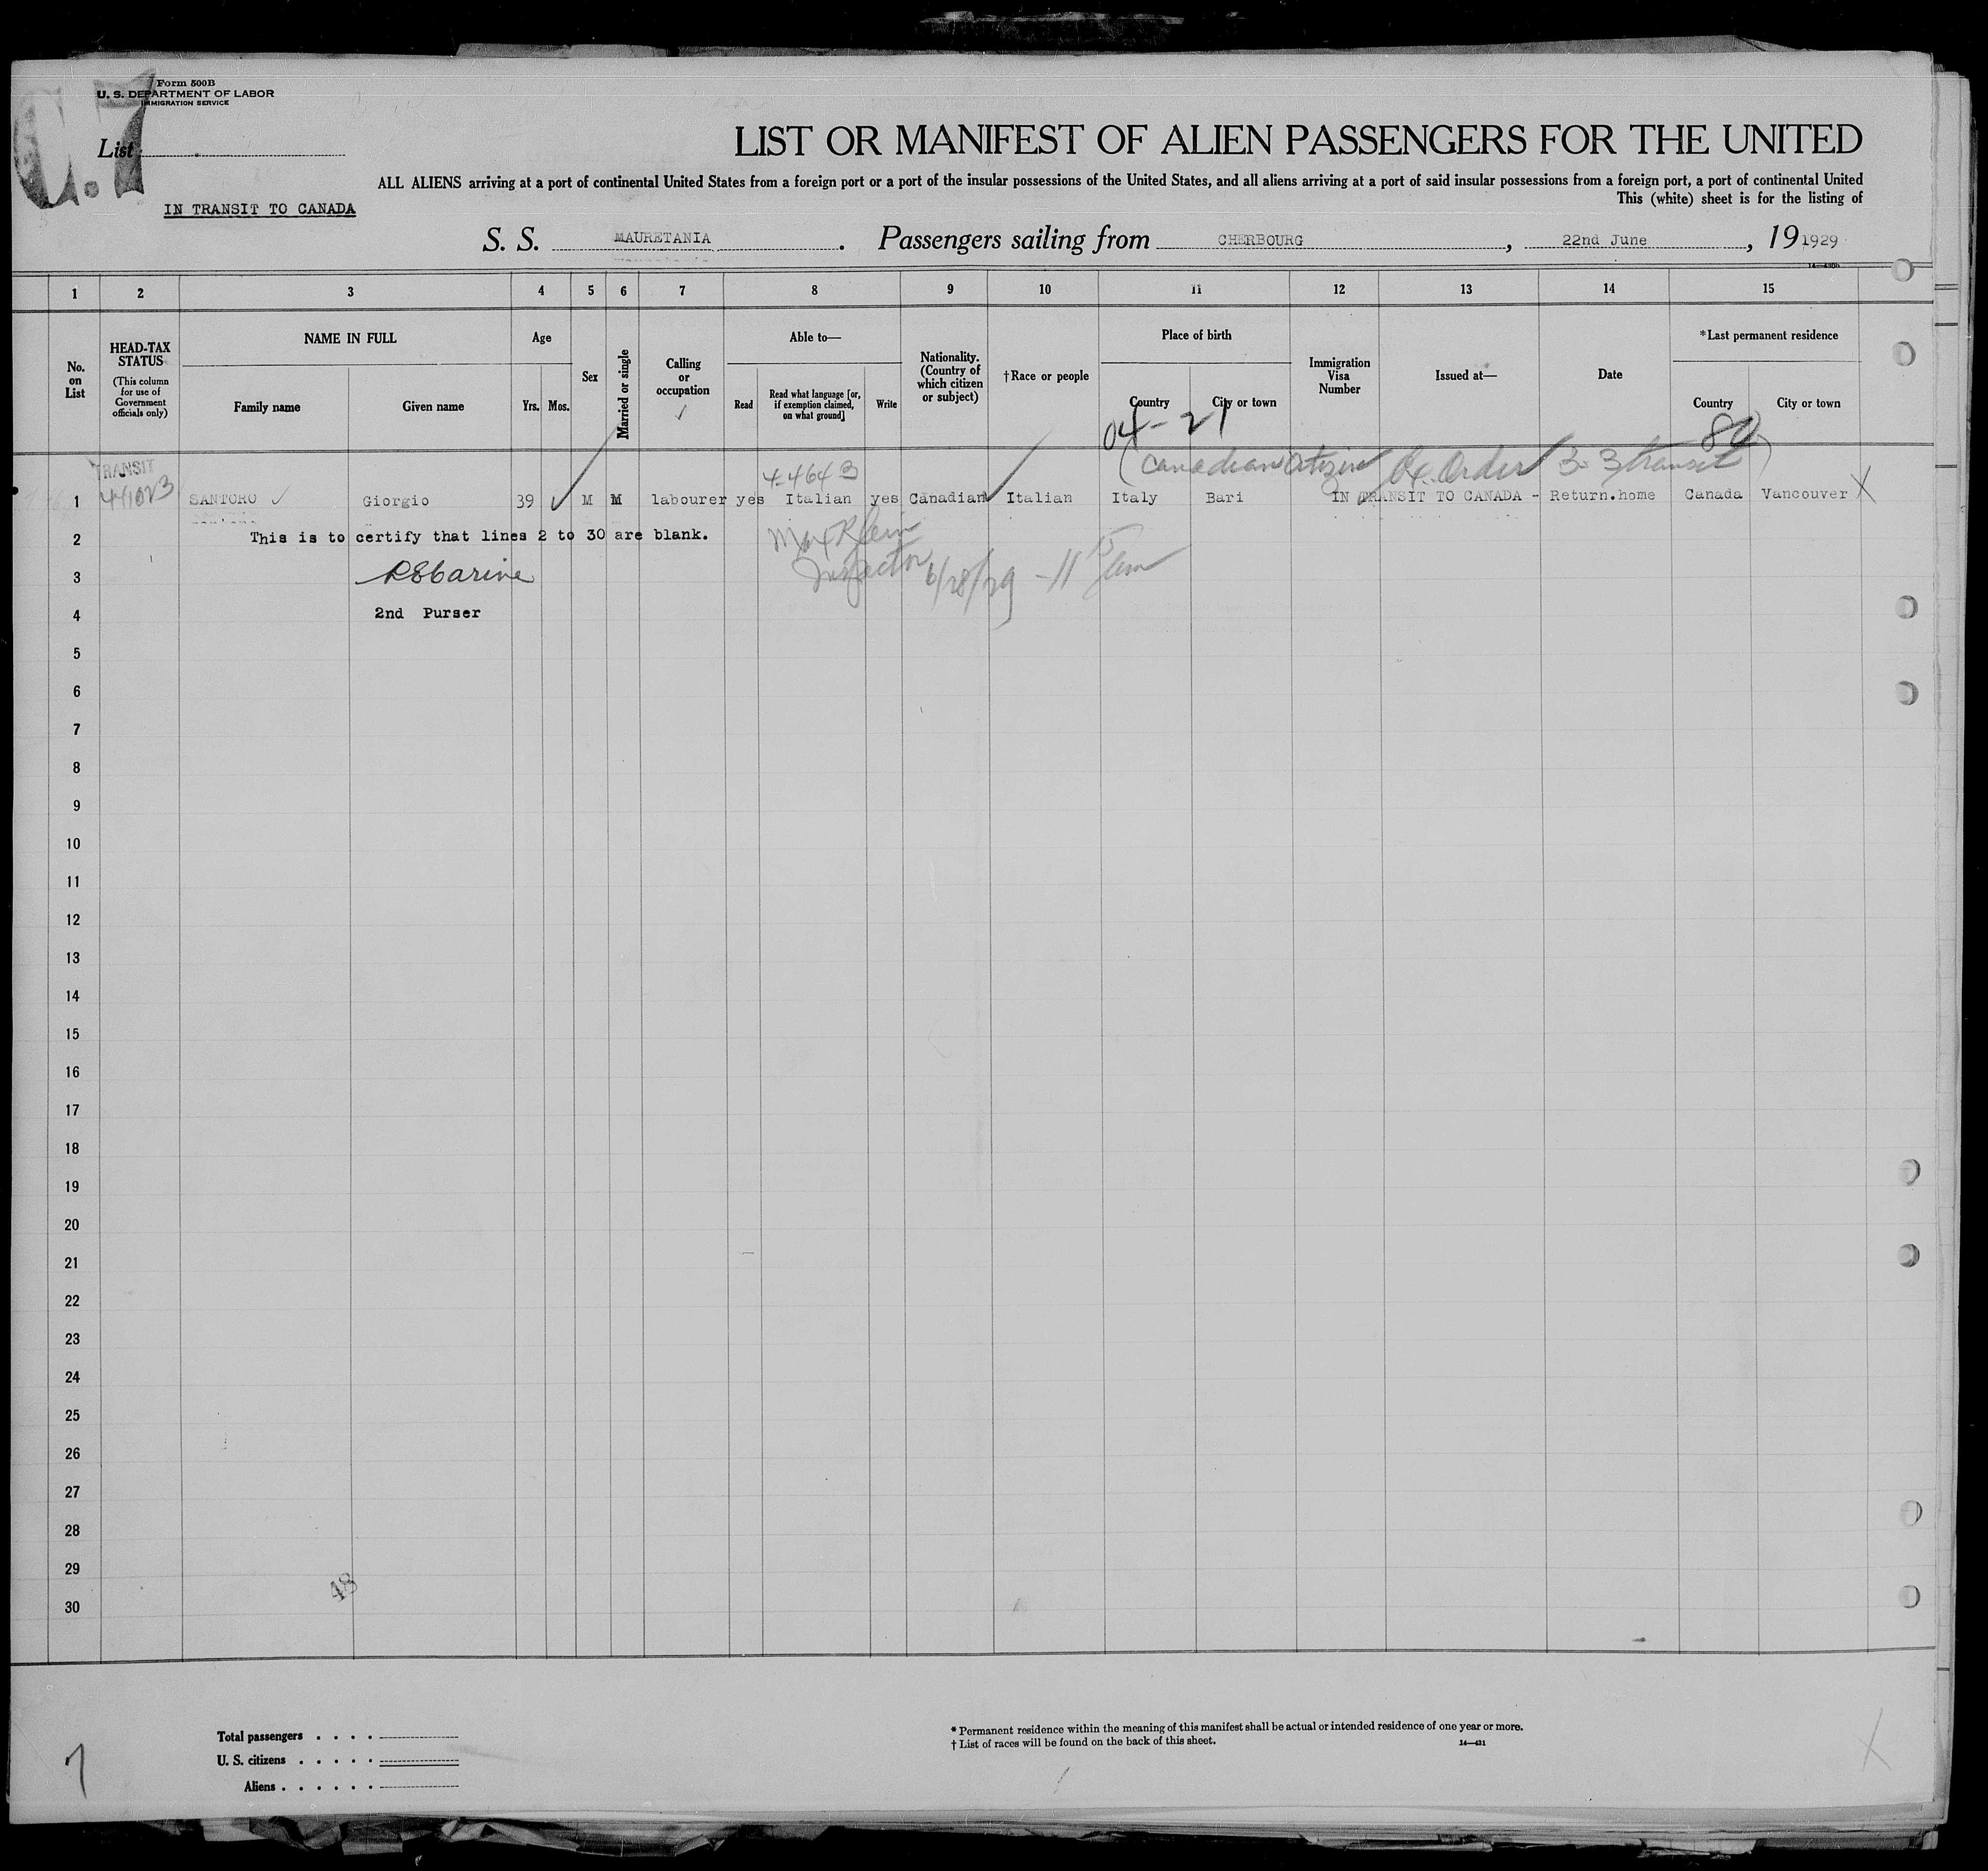 Form 500B
U. S. DEPARTMENT OF LABOR
IMMIGRATION SERVICE
List
IN TRANSIT TO CANADA
LIST OR MANIFEST OF ALIEN PASSENGERS FOR THE UNITED
ALL ALIENS arriving at a port of continental United States from a foreign port or a port of the insular possessions of the United States, and all aliens arriving at a port of said insular possessions from a foreign port, a port of continental United
This (white) sheet is for the listing of
S. S. MAURETANIA. Passengers sailing from CHERBOURG, 22nd June, 19 1929
14—430b
1 2 3 4 5 6 7 8 9 10 11 12 13 14 15
No. on List
HEAD-TAX STATUS
(This column for use of Government officials only)
NAME IN FULL
Family name Given name
Age
Yrs. Mos.
Sex
Married or single
Calling or occupation
Able to—
Read
Read what language [or, if exemption claimed, on what ground]
Write
Nationality. (Country of which citizen or subject)
†Race or people
Place of birth
Country City or town
Immigration Visa Number
Issued at—
Date
*Last permanent residence
Country City or town
04-21 80
TRANSIT 4-4643 (Canadian Citizen Ex. Order 3-3 transit)
1 SANTORO Giorgio 39 M M labourer yes Italian yes Canadian Italian Italy Bari IN TRANSIT TO CANADA - Return.home Canada Vancouver X
2 This is to certify that lines 2 to 30 are blank. Max Klein
3 Inspector 6/28/29 - 11 15 am
4 2nd Purser
5
6
7
8
9
10
11
12
13
14
15
16
17
18
19
20
21
22
23
24
25
26
27
28
29
30
48
Total passengers
U. S. citizens
Aliens
* Permanent residence within the meaning of this manifest shall be actual or intended residence of one year or more.
† List of races will be found on the back of this sheet.
14—431
7
X